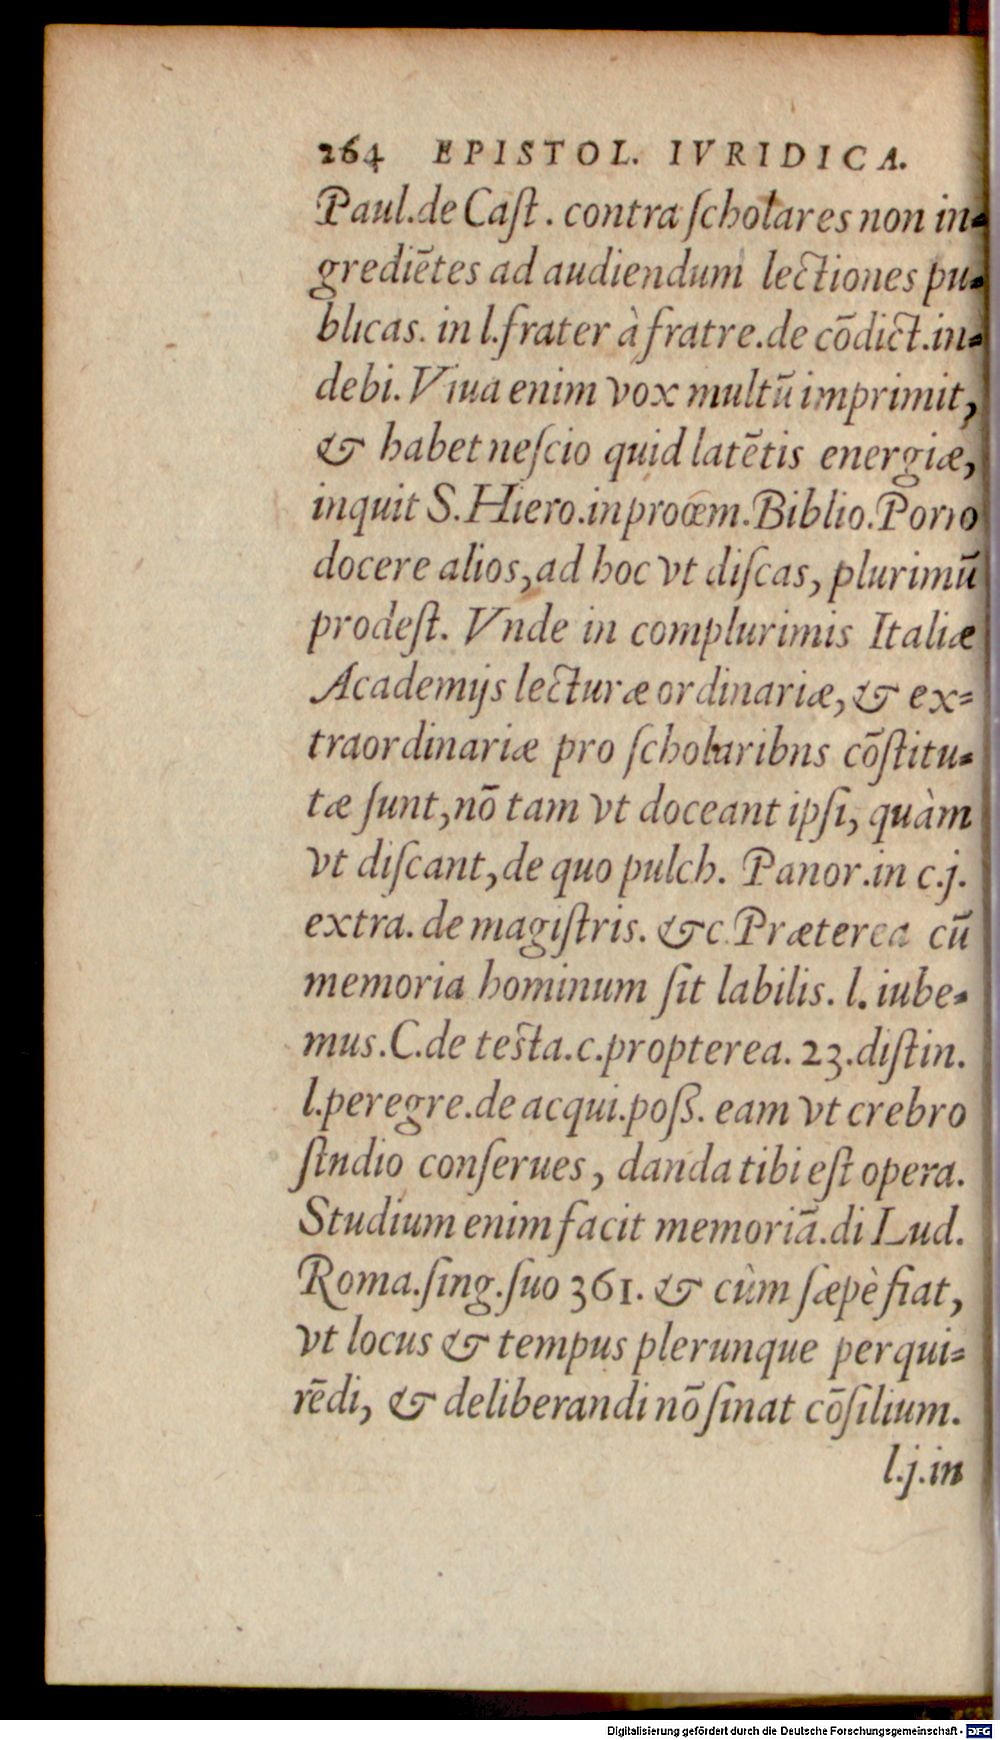 264 EPISTOL. IVRIDICA.
Paul.de Caſt. contra ſcholares non in-
grediētes ad audiendum lectiones pu-
blicas. in l.frater à fratre.de cōdict.in-
debi. Viua enim vox multū imprimit,
& habet neſcio quid latētis energiæ,
inquit S.Hiero.in proœm.Biblio.Porro
docere alios,ad hoc vt diſcas, plurimū
prodeſt. Vnde in complurimis Italiæ
Academijs lecturæ ordinariæ,& ex-
traordinariæ pro ſcholaribns cōſtitu-
tæ ſunt,nō tam vt doceant ipſi, quàm
vt diſcant,de quo pulch. Panor.in c.j.
extra. de magiſtris. &c.Præterea cū
memoria hominum ſit labilis. l. iube-
mus.C.de teſta.c.propterea. 23.diſtin.
l.peregre.de acqui.poſſ. eam vt crebro
ſtndio conſerues, danda tibi eſt opera.
Studium enim facit memoriā.di Lud.
Roma.ſing.ſuo 361. & cùm ſæpè fiat,
vt locus & tempus plerunque perqui-
rēdi, & deliberandi nō ſinat cōſilium.
l.j.in
Digitalisierung gefördert durch die Deutsche Forschungsgemeinschaft - DFG